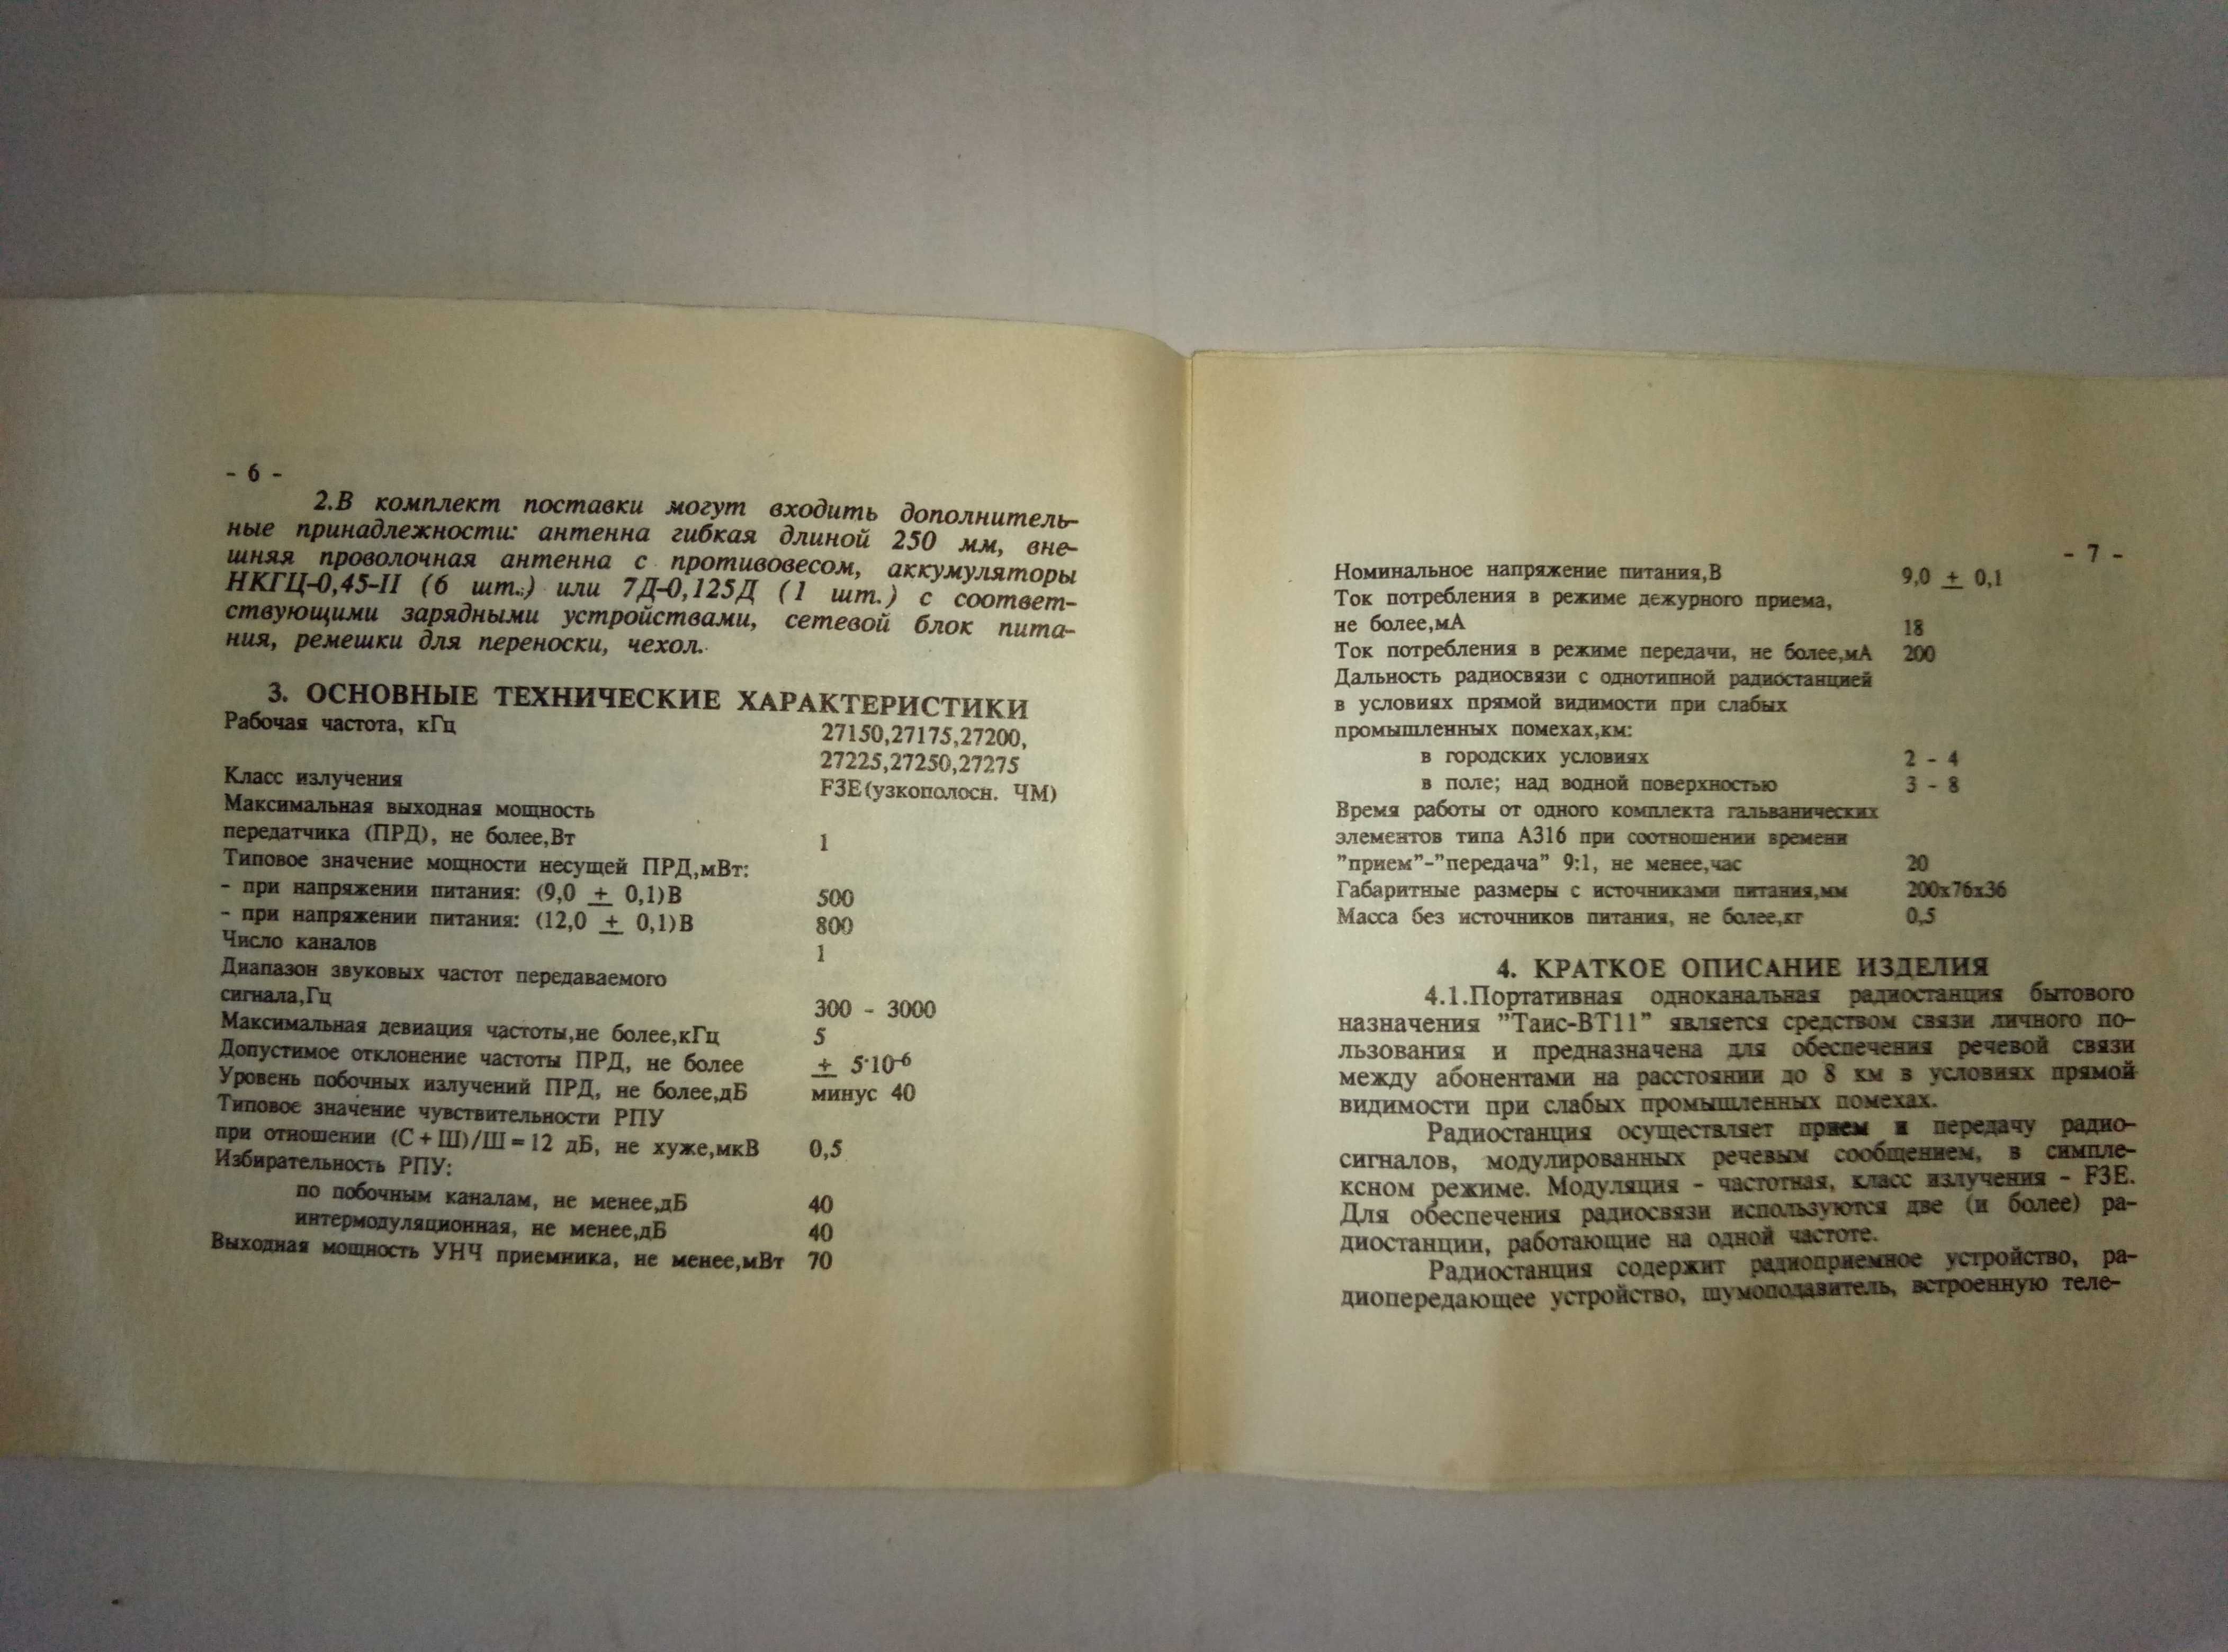 - 6 -
2.В комплект поставки могут входить дополнитель-
ные принадлежности: антенна гибкая длиной 250 мм, вне-
шняя проволочная антенна с противовесом, аккумуляторы
НКГЦ-0,45-II (6 шт.) или 7Д-0,125Д (1 шт.) с соответ-
ствующими зарядными устройствами, сетевой блок пита-
ния, ремешки для переноски, чехол.
3. ОСНОВНЫЕ ТЕХНИЧЕСКИЕ ХАРАКТЕРИСТИКИ
Рабочая частота, кГц 27150,27175,27200,
27225,27250,27275
Класс излучения F3E(узкополосн. ЧМ)
Максимальная выходная мощность
передатчика (ПРД), не более,Вт 1
Типовое значение мощности несущей ПРД,мВт:
- при напряжении питания: (9,0 ± 0,1)В 500
- при напряжении питания: (12,0 ± 0,1)В 800
Число каналов 1
Диапазон звуковых частот передаваемого
сигнала,Гц 300 - 3000
Максимальная девиация частоты,не более,кГц 5
Допустимое отклонение частоты ПРД, не более ± 5·10⁻⁶
Уровень побочных излучений ПРД, не более,дБ минус 40
Типовое значение чувствительности РПУ
при отношении (С+Ш)/Ш=12 дБ, не хуже,мкВ 0,5
Избирательность РПУ:
по побочным каналам, не менее,дБ 40
интермодуляционная, не менее,дБ 40
Выходная мощность УНЧ приемника, не менее,мВт 70
- 7 -
Номинальное напряжение питания,В 9,0 ± 0,1
Ток потребления в режиме дежурного приема,
не более,мА 18
Ток потребления в режиме передачи, не более,мА 200
Дальность радиосвязи с однотипной радиостанцией
в условиях прямой видимости при слабых
промышленных помехах,км:
в городских условиях 2 - 4
в поле; над водной поверхностью 3 - 8
Время работы от одного комплекта гальванических
элементов типа А316 при соотношении времени
"прием"-"передача" 9:1, не менее,час 20
Габаритные размеры с источниками питания,мм 200х76х36
Масса без источников питания, не более,кг 0,5
4. КРАТКОЕ ОПИСАНИЕ ИЗДЕЛИЯ
4.1.Портативная одноканальная радиостанция бытового
назначения "Таис-ВТ11" является средством связи личного по-
льзования и предназначена для обеспечения речевой связи
между абонентами на расстоянии до 8 км в условиях прямой
видимости при слабых промышленных помехах.
Радиостанция осуществляет прием и передачу радио-
сигналов, модулированных речевым сообщением, в симпле-
ксном режиме. Модуляция - частотная, класс излучения - F3E.
Для обеспечения радиосвязи используются две (и более) ра-
диостанции, работающие на одной частоте.
Радиостанция содержит радиоприемное устройство, ра-
диопередающее устройство, шумоподавитель, встроенную теле-